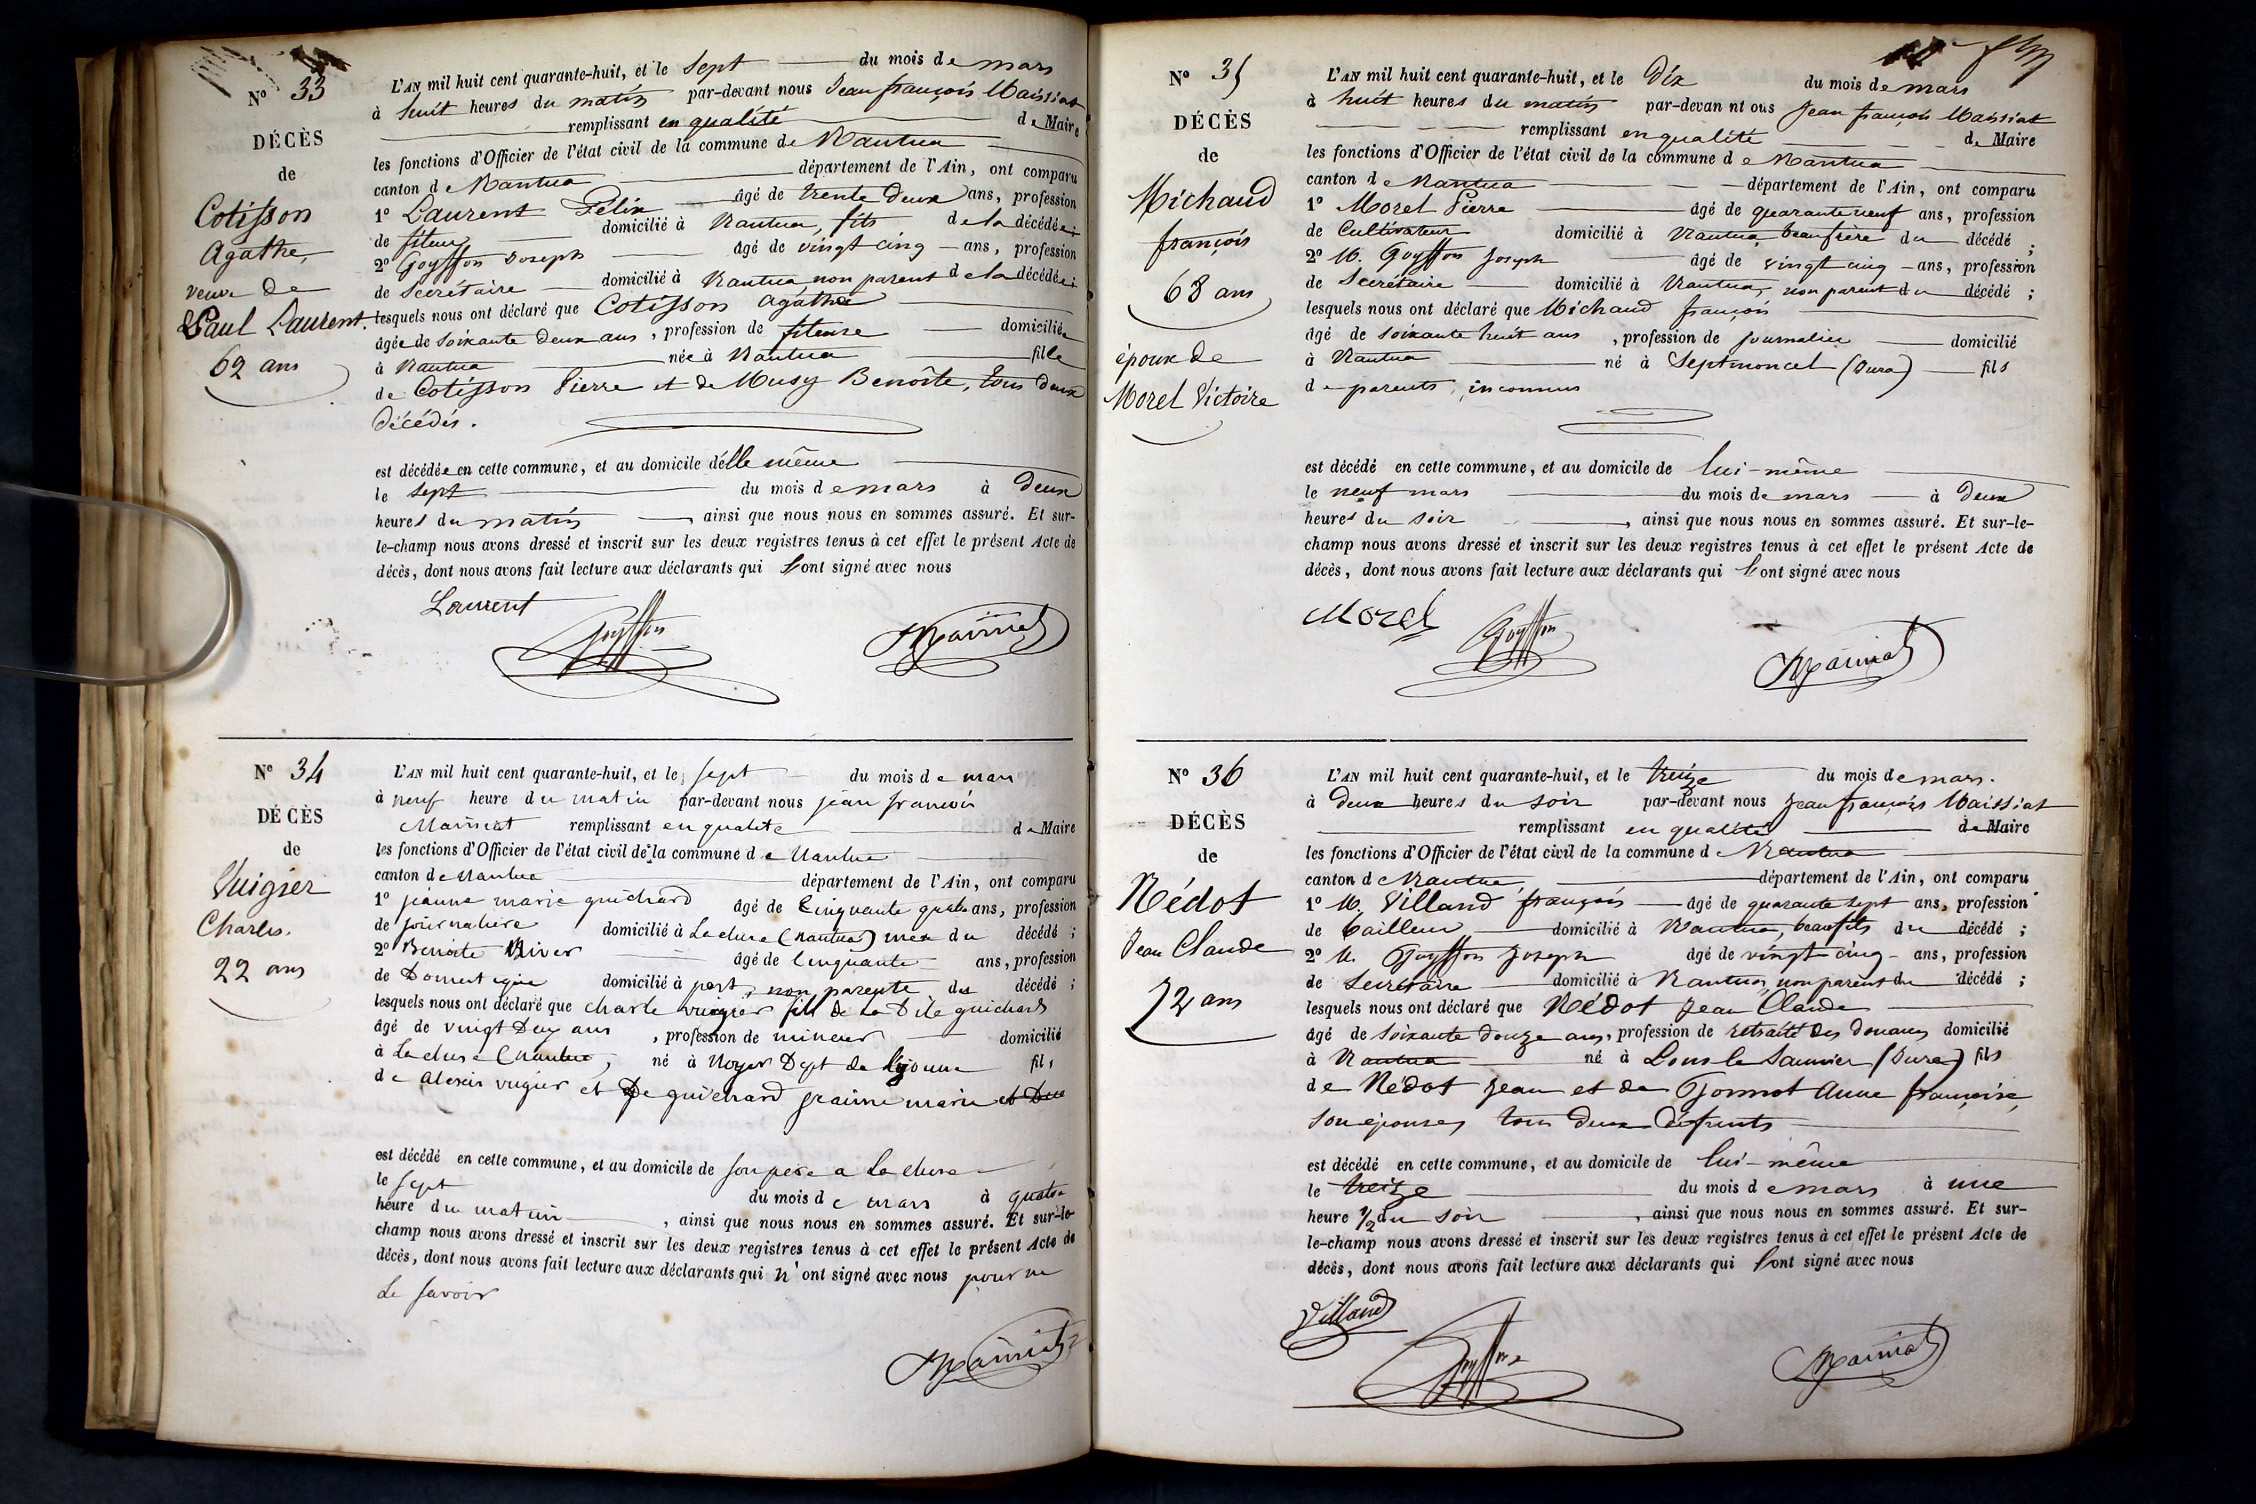 N° 33
DÉCÈS
de
Cotisson
Agathe,
veuve de
Paul Laurent.
62 ans
L'AN mil huit cent quarante-huit, et le sept du mois de mars
à huit heures du matin par-devant nous Jean françois Maissiat
remplissant en qualité de Maire
les fonctions d'Officier de l'état civil de la commune de Nantua
canton de Nantua département de l'Ain, ont comparu
1° Laurent Félix âgé de trente deux ans, profession
de fileur domicilié à Nantua, fils de la décédée;
2° Goyffon Joseph âgé de vingt cinq ans, profession
de Secrétaire domicilié à Nantua, non parent de la décédée;
lesquels nous ont déclaré que Cotisson Agathe
âgée de soixante deux ans, profession de fileuse domiciliée
à Nantua née à Nantua fille
de Cotisson Pierre et de Musy Benoîte, tous deux
décédés.
est décédée en cette commune, et au domicile d'elle même
le sept du mois de mars à deux
heures du matin, ainsi que nous nous en sommes assuré. Et sur-
le-champ nous avons dressé et inscrit sur les deux registres tenus à cet effet le présent Acte de
décès, dont nous avons fait lecture aux déclarants qui l'ont signé avec nous
Laurent Goyffon Maissiat
N° 34
DÉCÈS
de
Vuigier
Charles.
22 ans
L'AN mil huit cent quarante-huit, et le sept du mois de mars
à neuf heure du matin par-devant nous jean francois
Maissiat remplissant en qualité de Maire
les fonctions d'Officier de l'état civil de la commune de Nantua
canton de Nantua département de l'Ain, ont comparu
1° jeanne marie guichard âgé de Cinquante quatre ans, profession
de journaliere domicilié à La cluse (nantua) mere du décédé;
2° Benoite River âgé de Cinquante ans, profession
de Domestique domicilié à port, non parente du décédé;
lesquels nous ont déclaré que charle vuigier fils de la Dite guichard
âgé de vingt Deux ans, profession de mineur domicilié
à La cluse (nantua), né à Noyer Dept de lyonne fils
de alexis vugier et De guichard jeanne marie et Due
est décédé en cette commune, et au domicile de son pere a La cluse
le sept du mois de mars à quatre
heure du matin, ainsi que nous nous en sommes assuré. Et sur-le-
champ nous avons dressé et inscrit sur les deux registres tenus à cet effet le présent Acte de
décès, dont nous avons fait lecture aux déclarants qui n'ont signé avec nous pour ne
Le savoir
Maissiat
N° 35
DÉCÈS
de
Michaud
françois
68 ans
époux de
Morel Victoire
L'AN mil huit cent quarante-huit, et le dix du mois de mars
à huit heures du matin par-devan nt ous Jean françois Maissiat
remplissant en qualité de Maire
les fonctions d'Officier de l'état civil de la commune de Nantua
canton de Nantua département de l'Ain, ont comparu
1° Morel Pierre âgé de quarante neuf ans, profession
de Cultivateur domicilié à Nantua, beau frère du décédé;
2° M. Goyffon Joseph âgé de vingt cinq ans, profession
de Secrétaire domicilié à Nantua, non parent du décédé;
lesquels nous ont déclaré que Michaud françois
âgé de soixante huit ans, profession de journalier domicilié
à Nantua né à Septmoncel (Jura) fils
de parents inconnus
est décédé en cette commune, et au domicile de lui-même
le neuf mars du mois de mars à deux
heures du soir, ainsi que nous nous en sommes assuré. Et sur-le-
champ nous avons dressé et inscrit sur les deux registres tenus à cet effet le présent Acte de
décès, dont nous avons fait lecture aux déclarants qui l'ont signé avec nous
Morel Goyffon Maissiat
N° 36
DÉCÈS
de
Nédot
Jean Claude
72 ans
L'AN mil huit cent quarante-huit, et le treize du mois de mars.
à deux heures du soir par-devant nous Jean françois Maissiat
remplissant en qualité de Maire
les fonctions d'Officier de l'état civil de la commune de Nantua
canton de Nantua département de l'Ain, ont comparu
1° M. Villand françois âgé de quarante sept ans, profession
de tailleur domicilié à Nantua, beau fils du décédé;
2° M. Goyffon Joseph âgé de vingt cinq ans, profession
de Secrétaire domicilié à Nantua, non parent du décédé;
lesquels nous ont déclaré que Nédot Jean Claude
âgé de soixante douze ans, profession de retraité des douanes domicilié
à Nantua né à Lons le Saunier (Jura) fils
de Nédot Jean et de Gonnot Anne françoise,
son épouse, tous deux défunts
est décédé en cette commune, et au domicile de lui-même
le treize du mois de mars à une
heure 1/2 du soir, ainsi que nous nous en sommes assuré. Et sur-
le-champ nous avons dressé et inscrit sur les deux registres tenus à cet effet le présent Acte de
décès, dont nous avons fait lecture aux déclarants qui l'ont signé avec nous
Villand Goyffon Maissiat